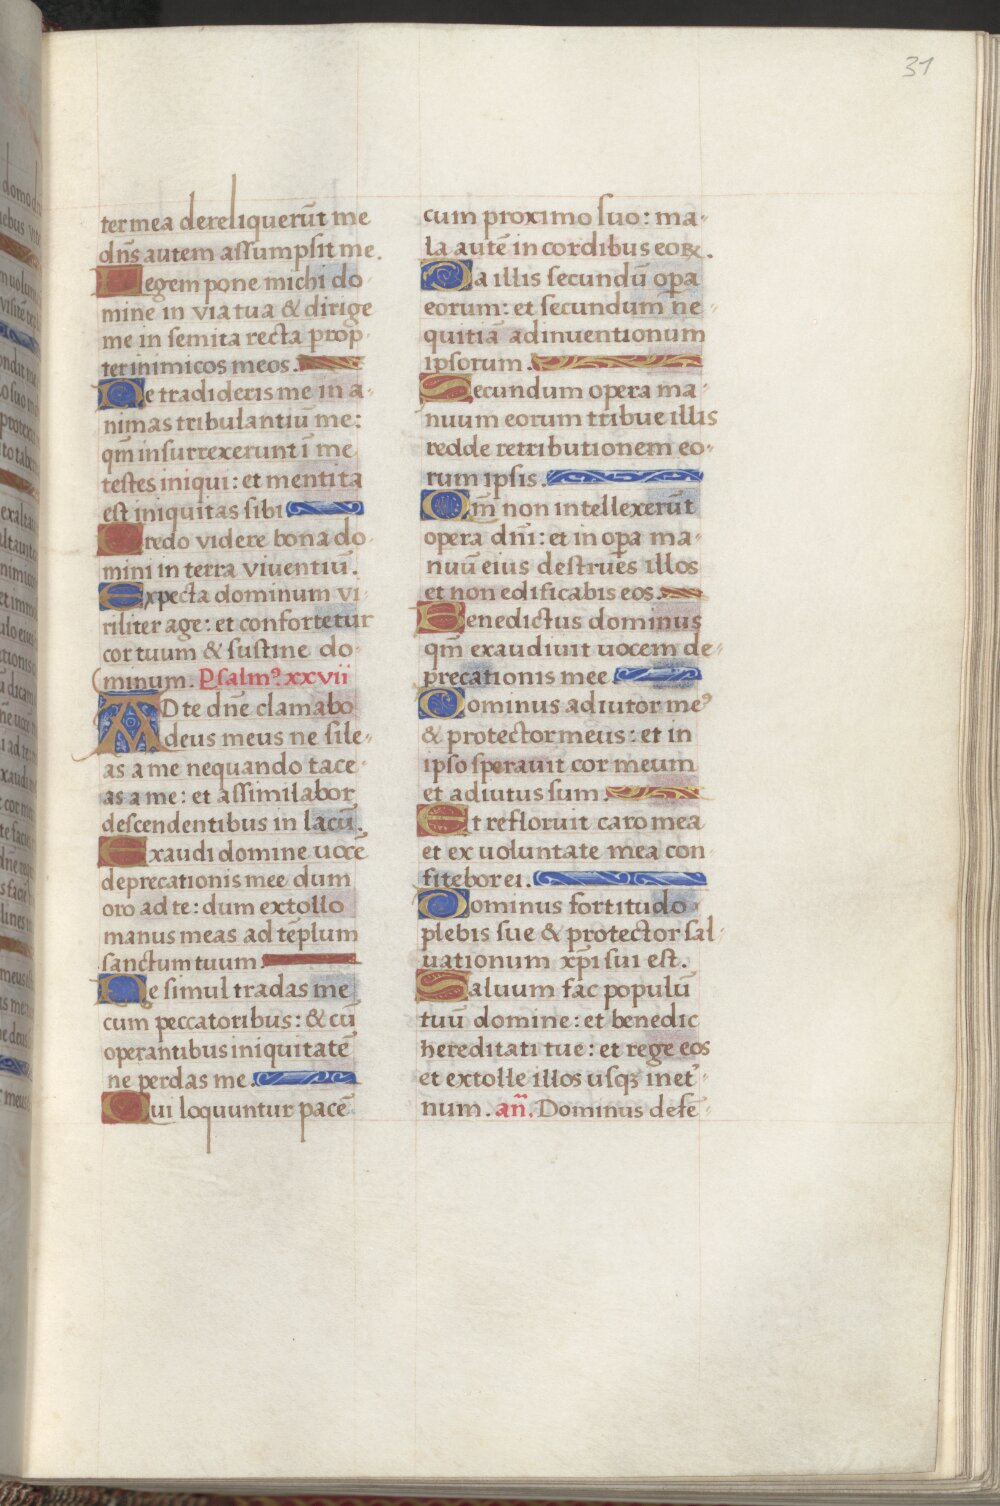 31
ter mea dereliquerūt me
dn̄s autem assumpsit me.
Legem pone michi do-
mine in via tua & dirige
me in semita recta prop-
ter inimicos meos.
Ne tradideris me in a-
nimas tribulantiū me:
qm̄ insurrexerunt ī me
testes iniqui: et mentita
est iniquitas sibi.
Credo videre bona do-
mini in terra viventiū.
Expecta dominum vi-
riliter age: et confortetur
cor tuum & sustine do-
minum. Psalmꝰ. xxvii
AD te dn̄e clamabo
deus meus ne sile-
as a me nequando tace-
as a me: et assimilabor
descendentibus in lacū.
Exaudi domine uocē
deprecationis mee dum
oro ad te: dum extollo
manus meas ad tēplum
sanctum tuum.
Ne simul tradas me
cum peccatoribus: & cū
operantibus iniquitatē
ne perdas me.
Qui loquuntur pacē
cum proximo suo: ma-
la autē in cordibus eoꝝ.
Da illis secundū oꝑa
eorum: et secundum ne-
quitiā adinventionum
ipsorum.
Secundum opera ma-
nuum eorum tribue illis
redde retributionem eo-
rum ipsis.
Qm̄ non intellexerūt
opera dn̄i: et in oꝑa ma-
nuū eius destrues illos
et non edificabis eos.
Benedictus dominus
qm̄ exaudivit uocem de-
precationis mee.
Dominus adiutor meꝰ
& protector meus: et in
ipso speravit cor meum
et adiutus sum.
Et refloruit caro mea
et ex uoluntate mea con-
fitebor ei.
Dominus fortitudo
plebis sue & protector sal-
uationum xp̄i sui est.
Saluum fac populū
tuū domine: et benedic
hereditati tue: et rege eos
et extolle illos usqꝫ in et-
num. an̄. Dominus defē-